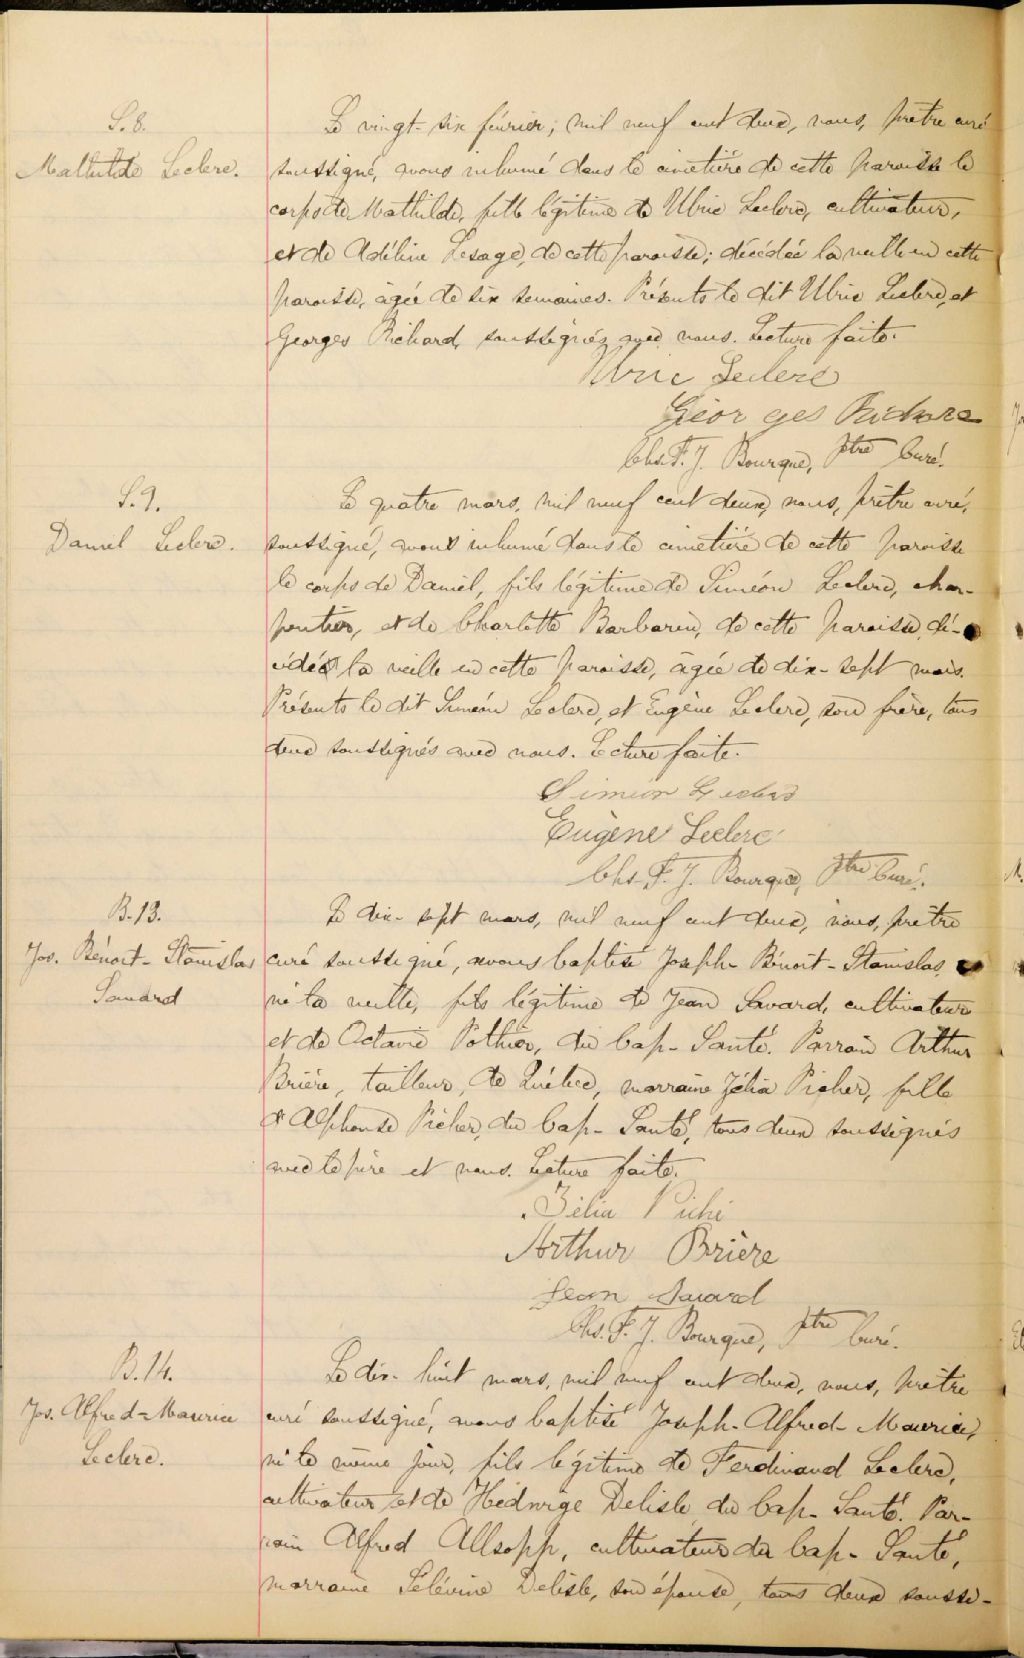 S. 8.
Mathilde Leclerc.
Le vingt-six février, mil neuf cent deux, nous, prêtre curé
soussigné, avons inhumé dans le cimetière de cette paroisse le
corps de Mathilde, fille légitime de Ulric Leclerc, cultivateur,
et de Adéline Lesage, de cette paroisse; décédée la veille en cette
paroisse, âgée de six semaines. Présents le dit Ulric Leclerc, et
Georges Richard, soussignés avec nous. Lecture faite.
Ulric Leclerc
Georges Richard
Chs. F. J. Bourque, Ptre Curé.
S. 9.
Daniel Leclerc.
Le quatre mars, mil neuf cent deux, nous, prêtre curé,
soussigné, avons inhumé dans le cimetière de cette paroisse
le corps de Daniel, fils légitime de Siméon Leclerc, char-
pentier, et de Charlotte Barbarin, de cette paroisse, dé-
cédé la veille en cette paroisse, âgée de dix-sept mois.
Présents le dit Siméon Leclerc, et Eugène Leclerc, son frère, tous
deux soussignés avec nous. Lecture faite.
Siméon Leclerc
Eugène Leclerc
Chs. F. J. Bourque, Ptre Curé.
B. 13.
Jos. Bénoit-Stanislas
Savard
Le dix-sept mars, mil neuf cent deux, nous, prêtre
curé soussigné, avons baptisé Joseph-Bénoit-Stanislas,
né la veille, fils légitime de Jean Savard, cultivateur
et de Octavie Pothier, du Cap-Santé. Parrain Arthur
Brière, tailleur, de Québec, marraine Zélia Picher, fille
d'Alphonse Picher, du Cap-Santé, tous deux soussignés
avec le père et nous. Lecture faite.
Zélia Piché
Arthur Brière
Jean Savard
Chs. F. J. Bourque, Ptre Curé.
B. 14.
Jos. Alfred-Maurice
Leclerc.
Le dix-huit mars, mil neuf cent deux, nous, prêtre
curé soussigné, avons baptisé Joseph-Alfred-Maurice,
né le même jour, fils légitime de Ferdinand Leclerc,
cultivateur et de Hedwige Delisle, du Cap-Santé. Par-
rain Alfred Allsopp, cultivateur du Cap-Santé,
marraine Delisle, son épouse, tous deux soussi-